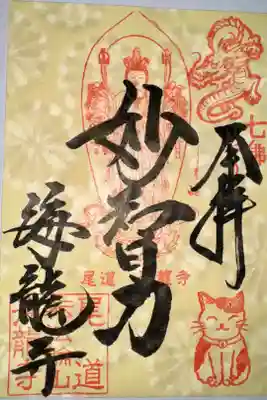 奉拝
七佛
妙智力
尾道 龍寺
海龍寺
尾道
龍寺